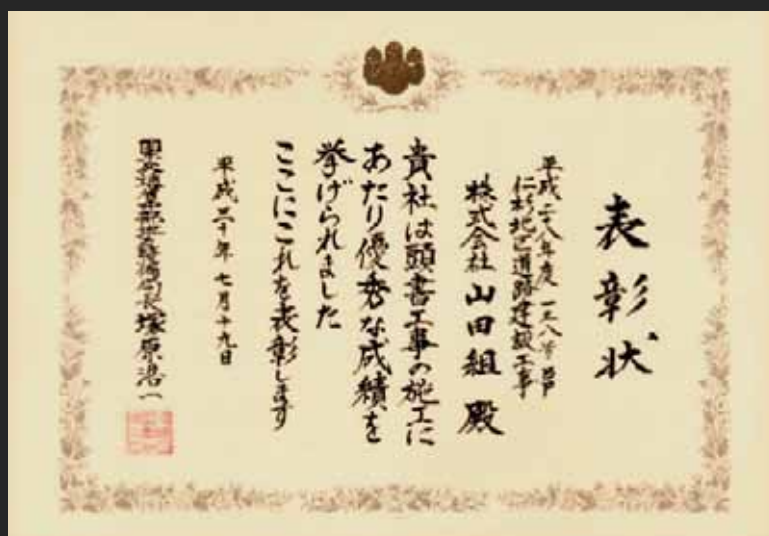 表彰状
平成二八年度 一三八号 戸
仁杉地区道路建設工事
株式会社 山田組 殿
貴社は頭書工事の施工に
あたり優秀な成績を
挙げられました
ここにこれを表彰します
平成三十年七月十九日
国土交通省 地方整備局長 塚原浩一